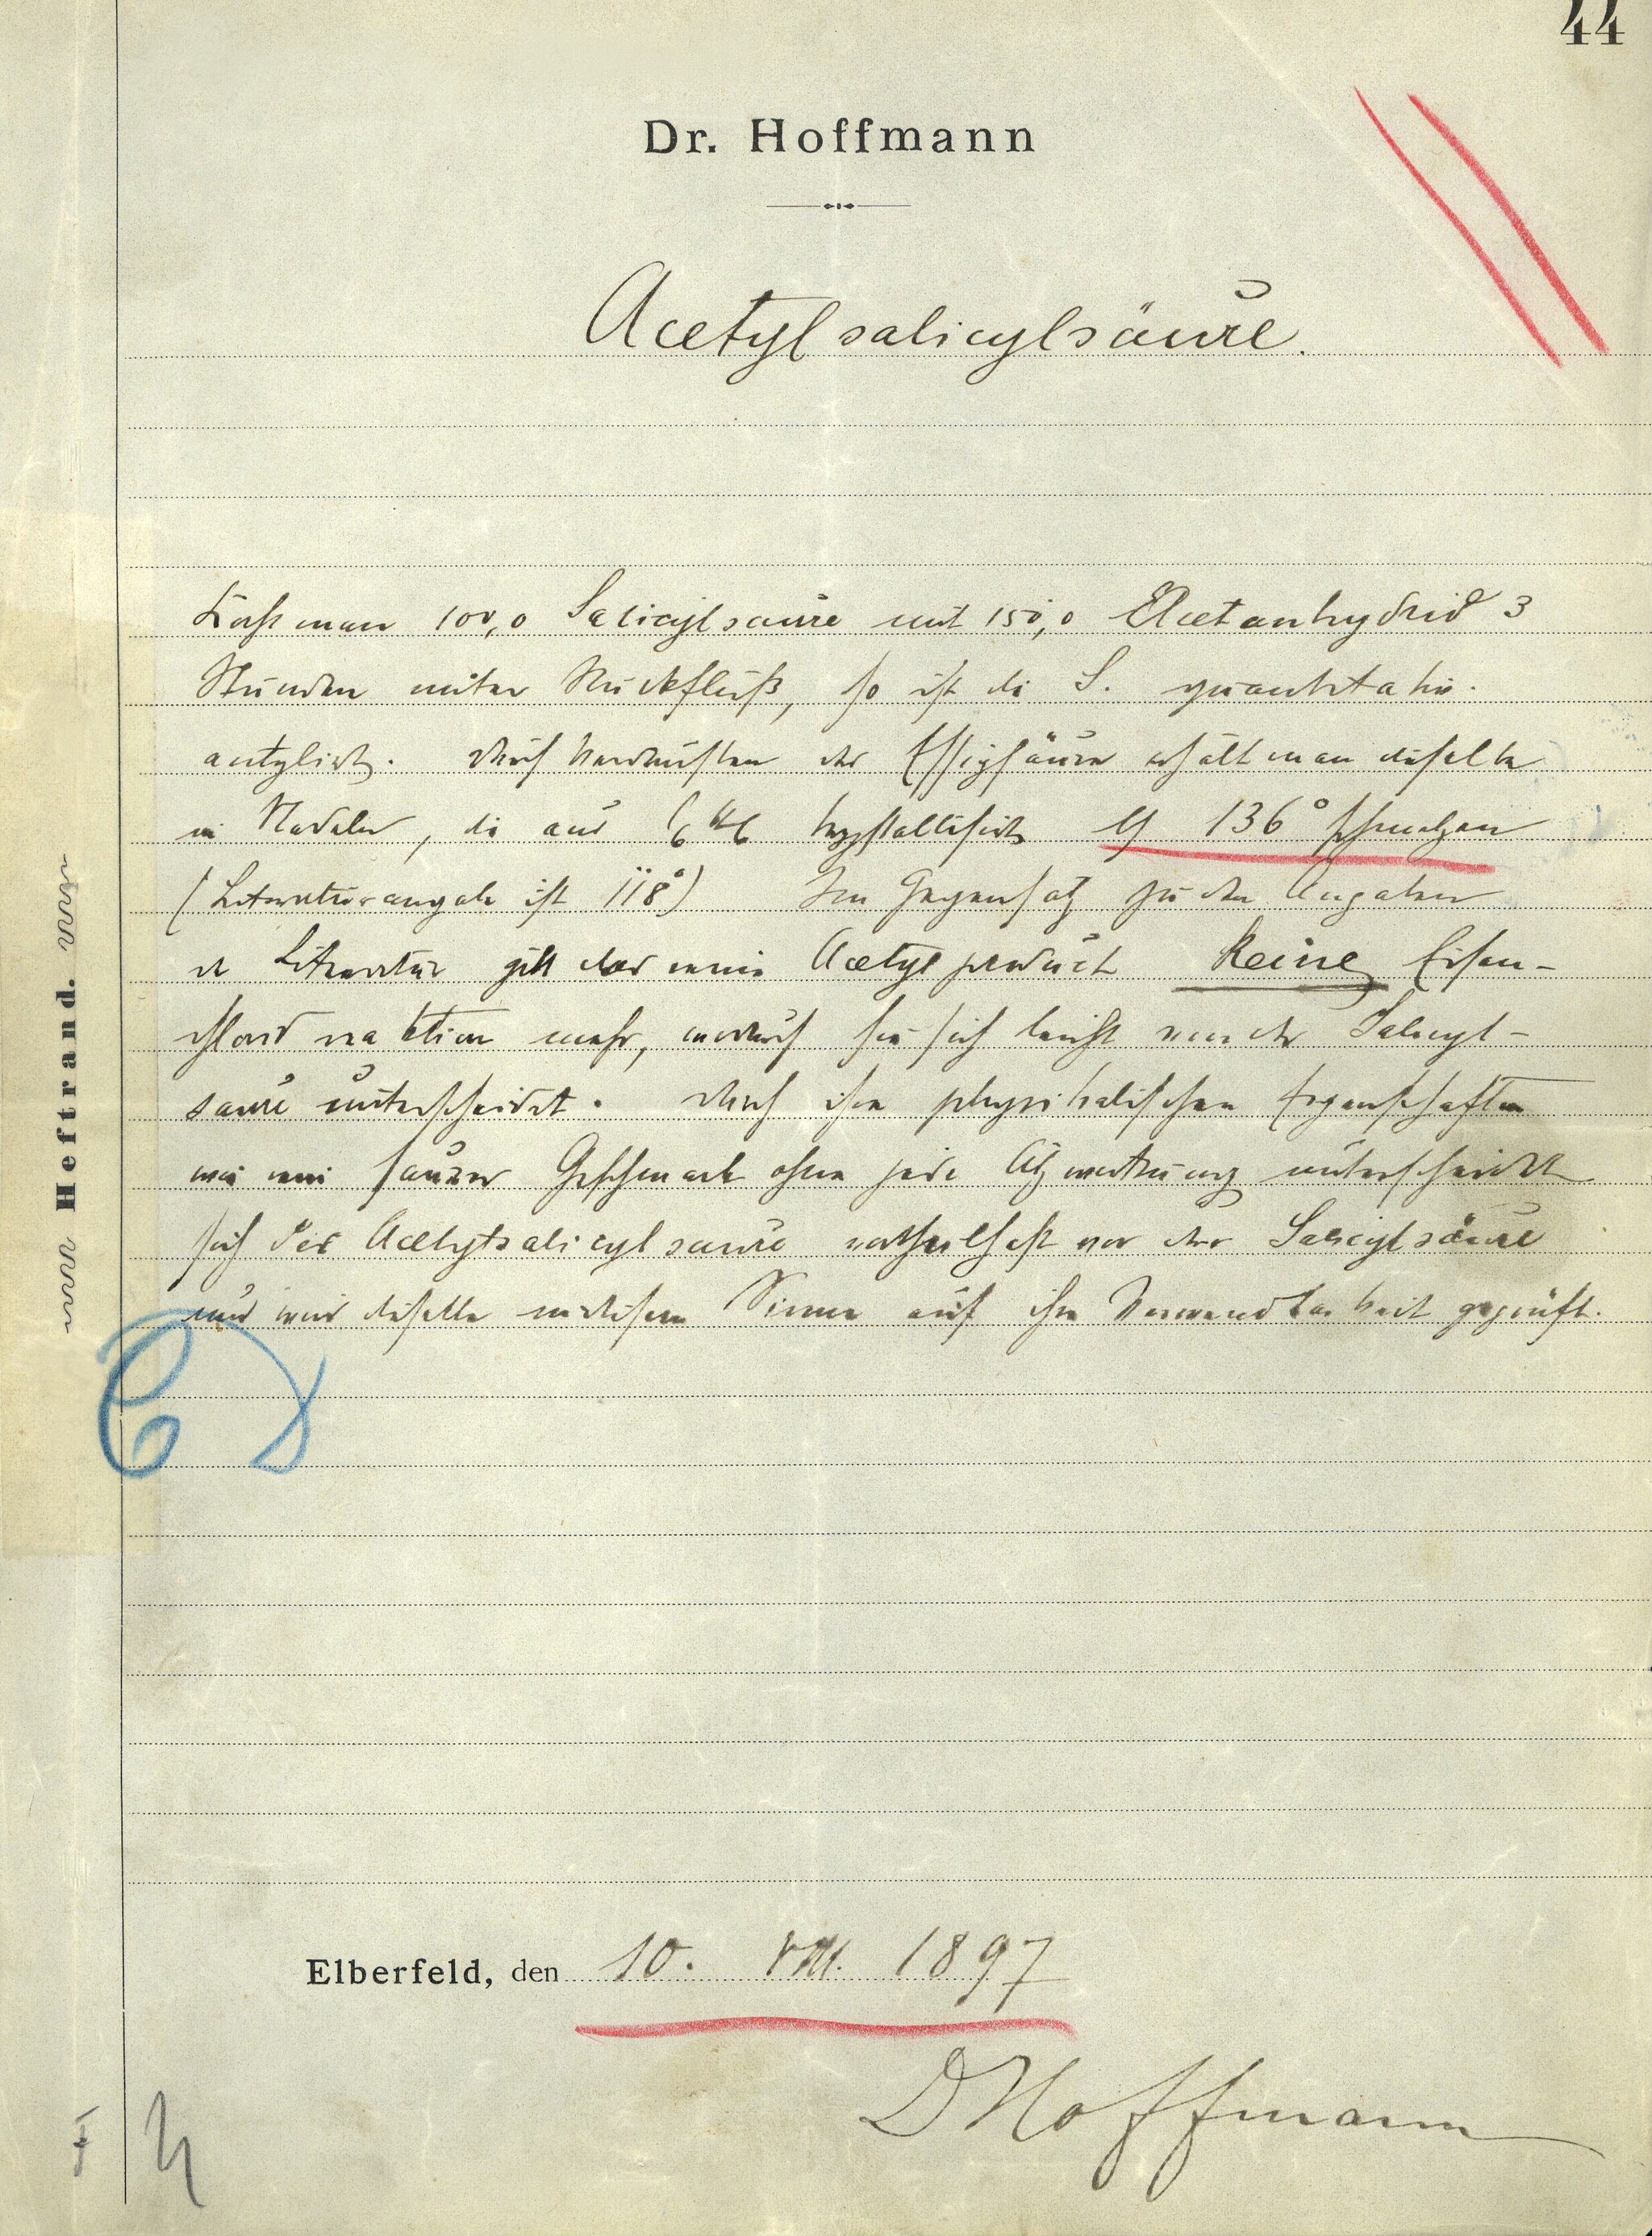 44
Dr. Hoffmann
Acetylsalicylsäure.
Kocht man 100,0 Salicylsäure mit 150,0 Acetanhydrid 3
Stunden unter Rückfluß, so ist die S. quantitativ
acetyliert. Durch der Essigsäure erhält man dieselbe
in Nadeln, die aus krystallisiert 136° schmelzen
(Literaturangabe ist 118°) Im Gegensatz zu den Angaben
der Literatur gibt das Acetylproduct keine Eisen-
chloridreaktion mehr, wodurch sie sich leicht von der Salicyl-
säure unterscheidet. Durch ihre physikalischen Eigenschaften
wie saurer Geschmack ohne jede Ätzwirkung unterscheidet
sich die Acetylsalicylsäure vortheilhaft von der Salicylsäure
und wird dieselbe in diesem Sinne auf ihre Verwendbarkeit geprüft.
Heftrand.
Elberfeld, den 10. VIII. 1897
D Hoffmann